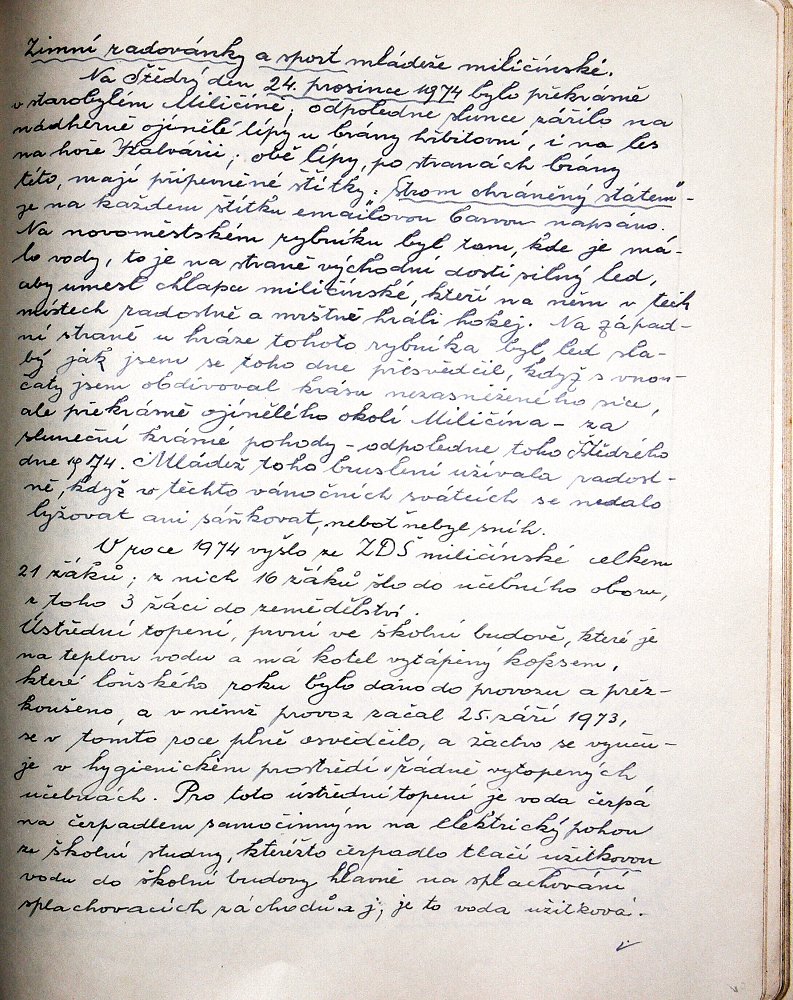 Zimní radovánky a sport mládeže miličínské.
Na Štědrý den, 24. prosince 1974 bylo překrásně
v starobylém Miličíně; odpoledne slunce zářilo na
nádherně ojínělé lípy u brány hřbitovní, i na les
na hoře Kalvárii; obě lípy, po stranách brány
této, mají připevněné štítky: „Strom chráněný státem"-
je na každém štítku emailovou barvou napsáno.
Na novoměstském rybníku byl tam, kde je má-
lo vody, to je na straně východní dosti silný led,
aby unesl chlapce miličínské, kteří na něm v těch
místech radostně a mrštně hráli hokej. Na západ-
ní straně u hráze tohoto rybníka byl led sla-
bý jak jsem se toho dne přesvědčil, když s vnou-
čaty jsem obdivoval krásu nezasněženého sice,
ale překrásně ojínělého okolí Miličína - za
sluneční krásné pohody - odpoledne toho Štědrého
dne 1974. Mládež toho bruslení užívala radost-
ně, když v těchto vánočních svátcích se nedalo
lyžovat ani sáňkovat, neboť nebyl sníh.
V roce 1974 vyšlo ze ZDŠ miličínské celkem
21 žáků; z nich 16 žáků šlo do učebního oboru,
z toho 3 žáci do zemědělství.
Ústřední topení, první ve školní budově, které je
na teplou vodu a má kotel vytápěný koksem,
které loňského roku bylo dáno do provozu a přez-
koušeno, a v němž provoz začal 25. září 1973,
se v tomto roce plně osvědčilo, a žactvo se vyuču-
je v hygienickém prostředí v řádně vytopených
učebnách. Pro toto ústřední topení je voda čerpá
na čerpadlem samočinným na elektrický pohon
ze školní studny, kteréžto čerpadlo tlačí užitkovou
vodu do školní budovy hlavně na splachování
splachovacích záchodů a j; je to voda užitková.